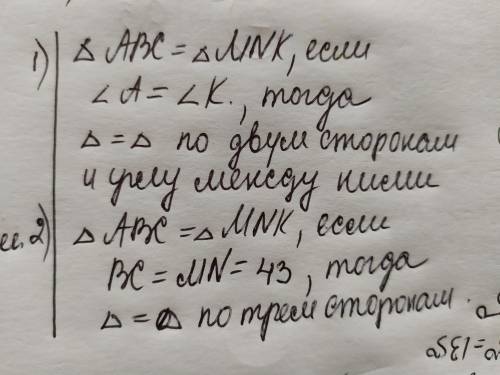 1) △ ABC = △ MNK, если
∠A = ∠K., тогда
△ = △ по двум сторонам
и углу между ними
2) △ ABC = △ MNK, если
BC = MN = 43, тогда
△ = △ по трем сторонам.